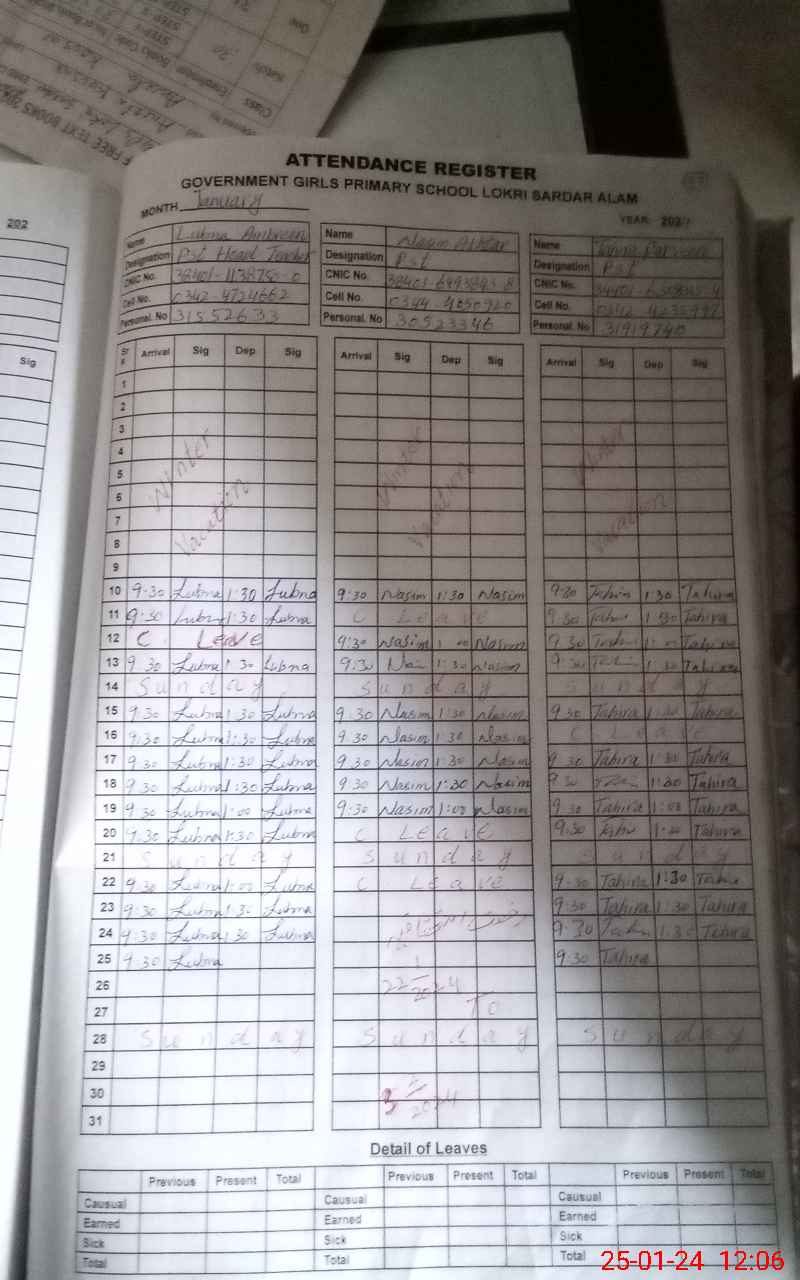 F FREE TEXT BOOKS 202
Class
Enrollment
202
Sig
ATTENDANCE REGISTER
GOVERNMENT GIRLS PRIMARY SCHOOL LOKRI SARDAR ALAM
MONTH January YEAR 202
Name Lubna Ambreen Name Nasim Akhtar Name Tahira Parveen
Designation Pst Head Teacher Designation Pst Designation Pst
CNIC No. 38401-1138750-0 CNIC No. CNIC No.
Cell No. 0342-4724662 Cell No. 0344-4050920 Cell No.
Personal. No 31552633 Personal. No 30523346 Personal. No 31919740
Sr # Arrival Sig Dep Sig Arrival Sig Dep Sig Arrival Sig Dep Sig
1
2
3
4
5
6
7
8
Winter Vacation Winter Vacation Winter Vacation
9
10 9:30 Lubna 1:30 Lubna 9:30 Nasim 1:30 Nasim 9:30 Tahira 1:30 Tahira
11 9:30 Lubna 1:30 Lubna C Leave 9:30 Tahira 1:30 Tahira
12 C. Leave 9:30 Nasim Nasim 9:30 Tahira Tahira
13 9:30 Lubna 1:30 Lubna 9:30 Nasim 1:30 Nasim 9:30 Tahira 1:30 Tahira
14 Sunday Sunday Sunday
15 9:30 Lubna 1:30 Lubna 9:30 Nasim 1:30 Nasim 9:30 Tahira 1:30 Tahira
16 9:30 Lubna 1:30 Lubna 9:30 Nasim 1:30 Nasim C Leave
17 9:30 Lubna 1:30 Lubna 9:30 Nasim 1:30 Nasim 9:30 Tahira 1:30 Tahira
18 9:30 Lubna 1:30 Lubna 9:30 Nasim 1:30 Nasim 9:30 Tahira 1:30 Tahira
19 9:30 Lubna 1:00 Lubna 9:30 Nasim 1:00 Nasim 9:30 Tahira 1:00 Tahira
20 9:30 Lubna 1:30 Lubna C Leave 9:30 Tahira 1:30 Tahira
21 Sunday Sunday Sunday
22 9:30 Lubna 1:00 Lubna C Leave 9:30 Tahira 1:30 Tahira
23 9:30 Lubna 1:30 Lubna 9:30 Tahira 1:30 Tahira
24 9:30 Lubna 1:30 Lubna 9:30 Tahira 1:30 Tahira
25 9:30 Lubna 9:30 Tahira
26 22 1/2024
27 To
28 Sunday Sunday Sunday
29
30 2024
31
Detail of Leaves
Previous Present Total Previous Present Total Previous Present Total
Causual Causual Causual
Earned Earned Earned
Sick Sick Sick
Total Total Total
25-01-24 12:06